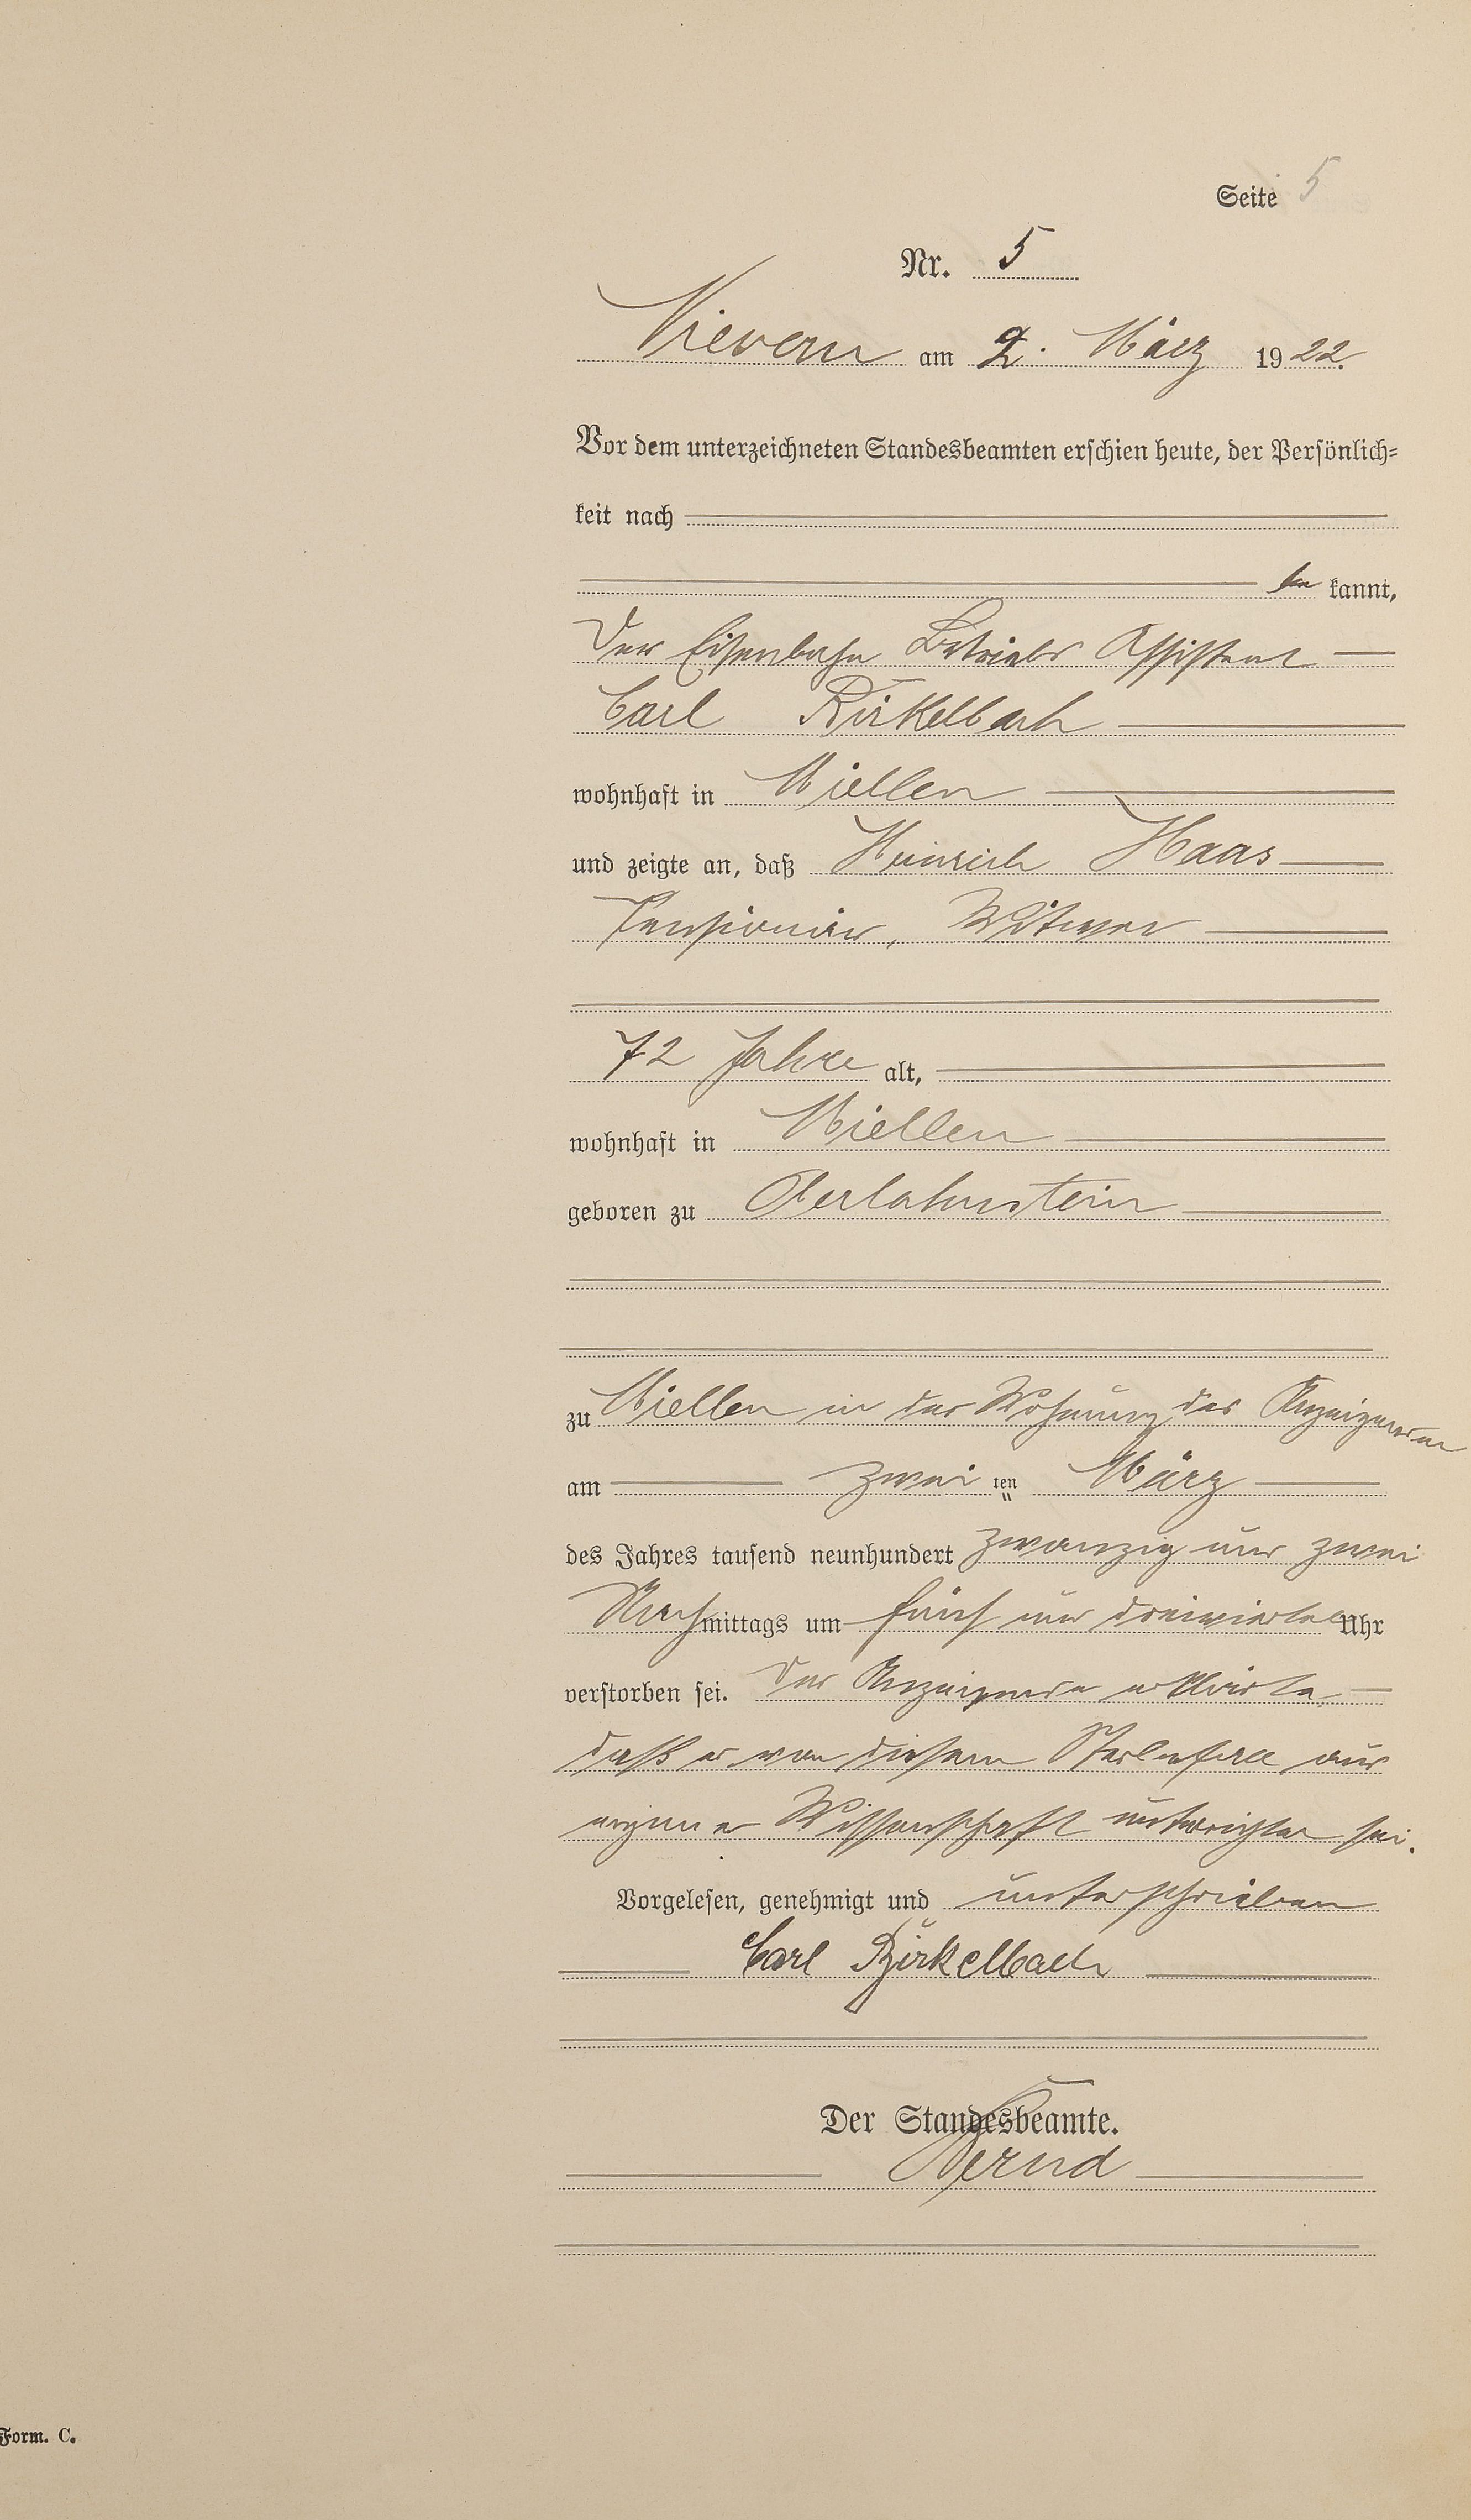 Seite 5
Nr. 5
Nievern am 2. März 1922.
Vor dem unterzeichneten Standesbeamten erschien heute, der Persönlich-
keit nach
be kannt,
der Eisenbahn Betriebs Assistent
Carl Birkelbach
wohnhaft in Miellen
und zeigte an, daß Heinrich Haas
Pensionär, Witwer
72 Jahre alt,
wohnhaft in Miellen
geboren zu Oberlahnstein
zu Miellen in der Wohnung des Anzeigenden
am zwei ten März
des Jahres tausend neunhundert zwanzig und zwei
Nachmittags um fünf und dreiviertel Uhr
verstorben sei. Der Anzeigende erklärte,
daß er von diesem Sterbefall aus
eigener Wissenschaft unterrichtet sei.
Vorgelesen, genehmigt und unterschrieben
Carl Birkelbach
Der Standesbeamte.
Form. C.